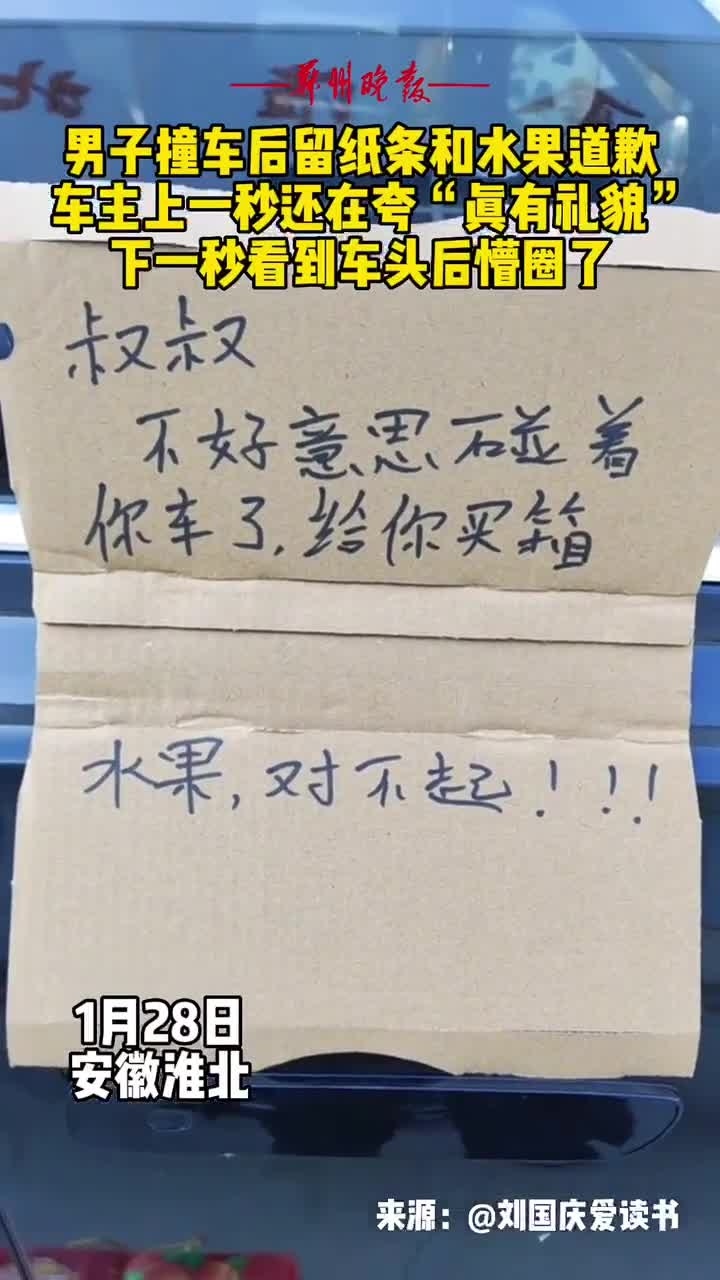 郑州晚报
男子撞车后留纸条和水果道歉
车主上一秒还在夸“真有礼貌”
下一秒看到车头后懵圈了
叔叔
不好意思碰着
你车了,给你买箱
水果,对不起!!!
1月28日
安徽淮北
来源:@刘国庆爱读书